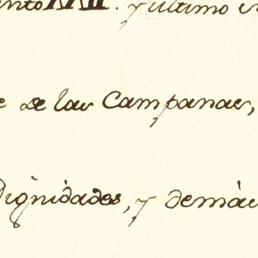 ento XXII. y ultimo
e de las Campanas,
Dignidades, y demás